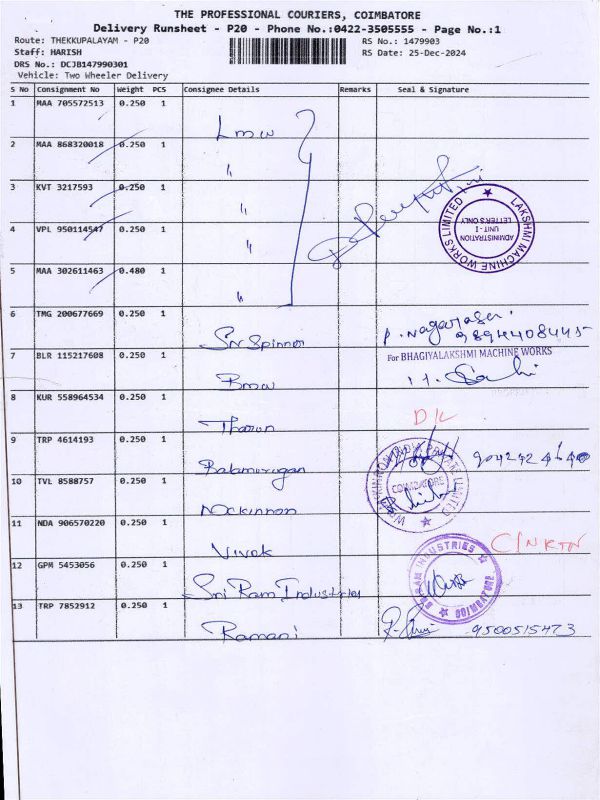 THE PROFESSIONAL COURIERS, COIMBATORE
Delivery Runsheet - P20 - Phone No.:0422-3505555 - Page No.:1
Route: THEKKUPALAYAM - P20 RS No.: 1479903
Staff: HARISH RS Date: 25-Dec-2024
DRS No.: DCJB147990301
Vehicle: Two Wheeler Delivery
S No Consignment No Weight PCS Consignee Details Remarks Seal & Signature
1 MAA 705572513 0.250 1 Lmw
2 MAA 868320018 0.250 1 "
3 KVT 3217593 0.250 1 "
4 VPL 950114547 0.250 1 "
5 MAA 302611463 0.480 1 "
LAKSHMI MACHINE WORKS LIMITED
ADMINISTRATION
UNIT - I
LETTER'S ONLY
6 TMG 200677669 0.250 1 Sri Spinner P. Nagarajan 9894408445
7 BLR 115217608 0.250 1 Bmw For BHAGIYALAKSHMI MACHINE WORKS
8 KUR 558964534 0.250 1 Tharun D/L
9 TRP 4614193 0.250 1 Balamurugan 9042424640
10 TVL 8588757 0.250 1 Mckinnon COIMBATORE
11 NDA 906570220 0.250 1 Vivek C/N RTN
12 GPM 5453056 0.250 1 Sri Ram Industries
SRI RAM INDUSTRIES COIMBATORE
13 TRP 7852912 0.250 1 Ramani 9500515473